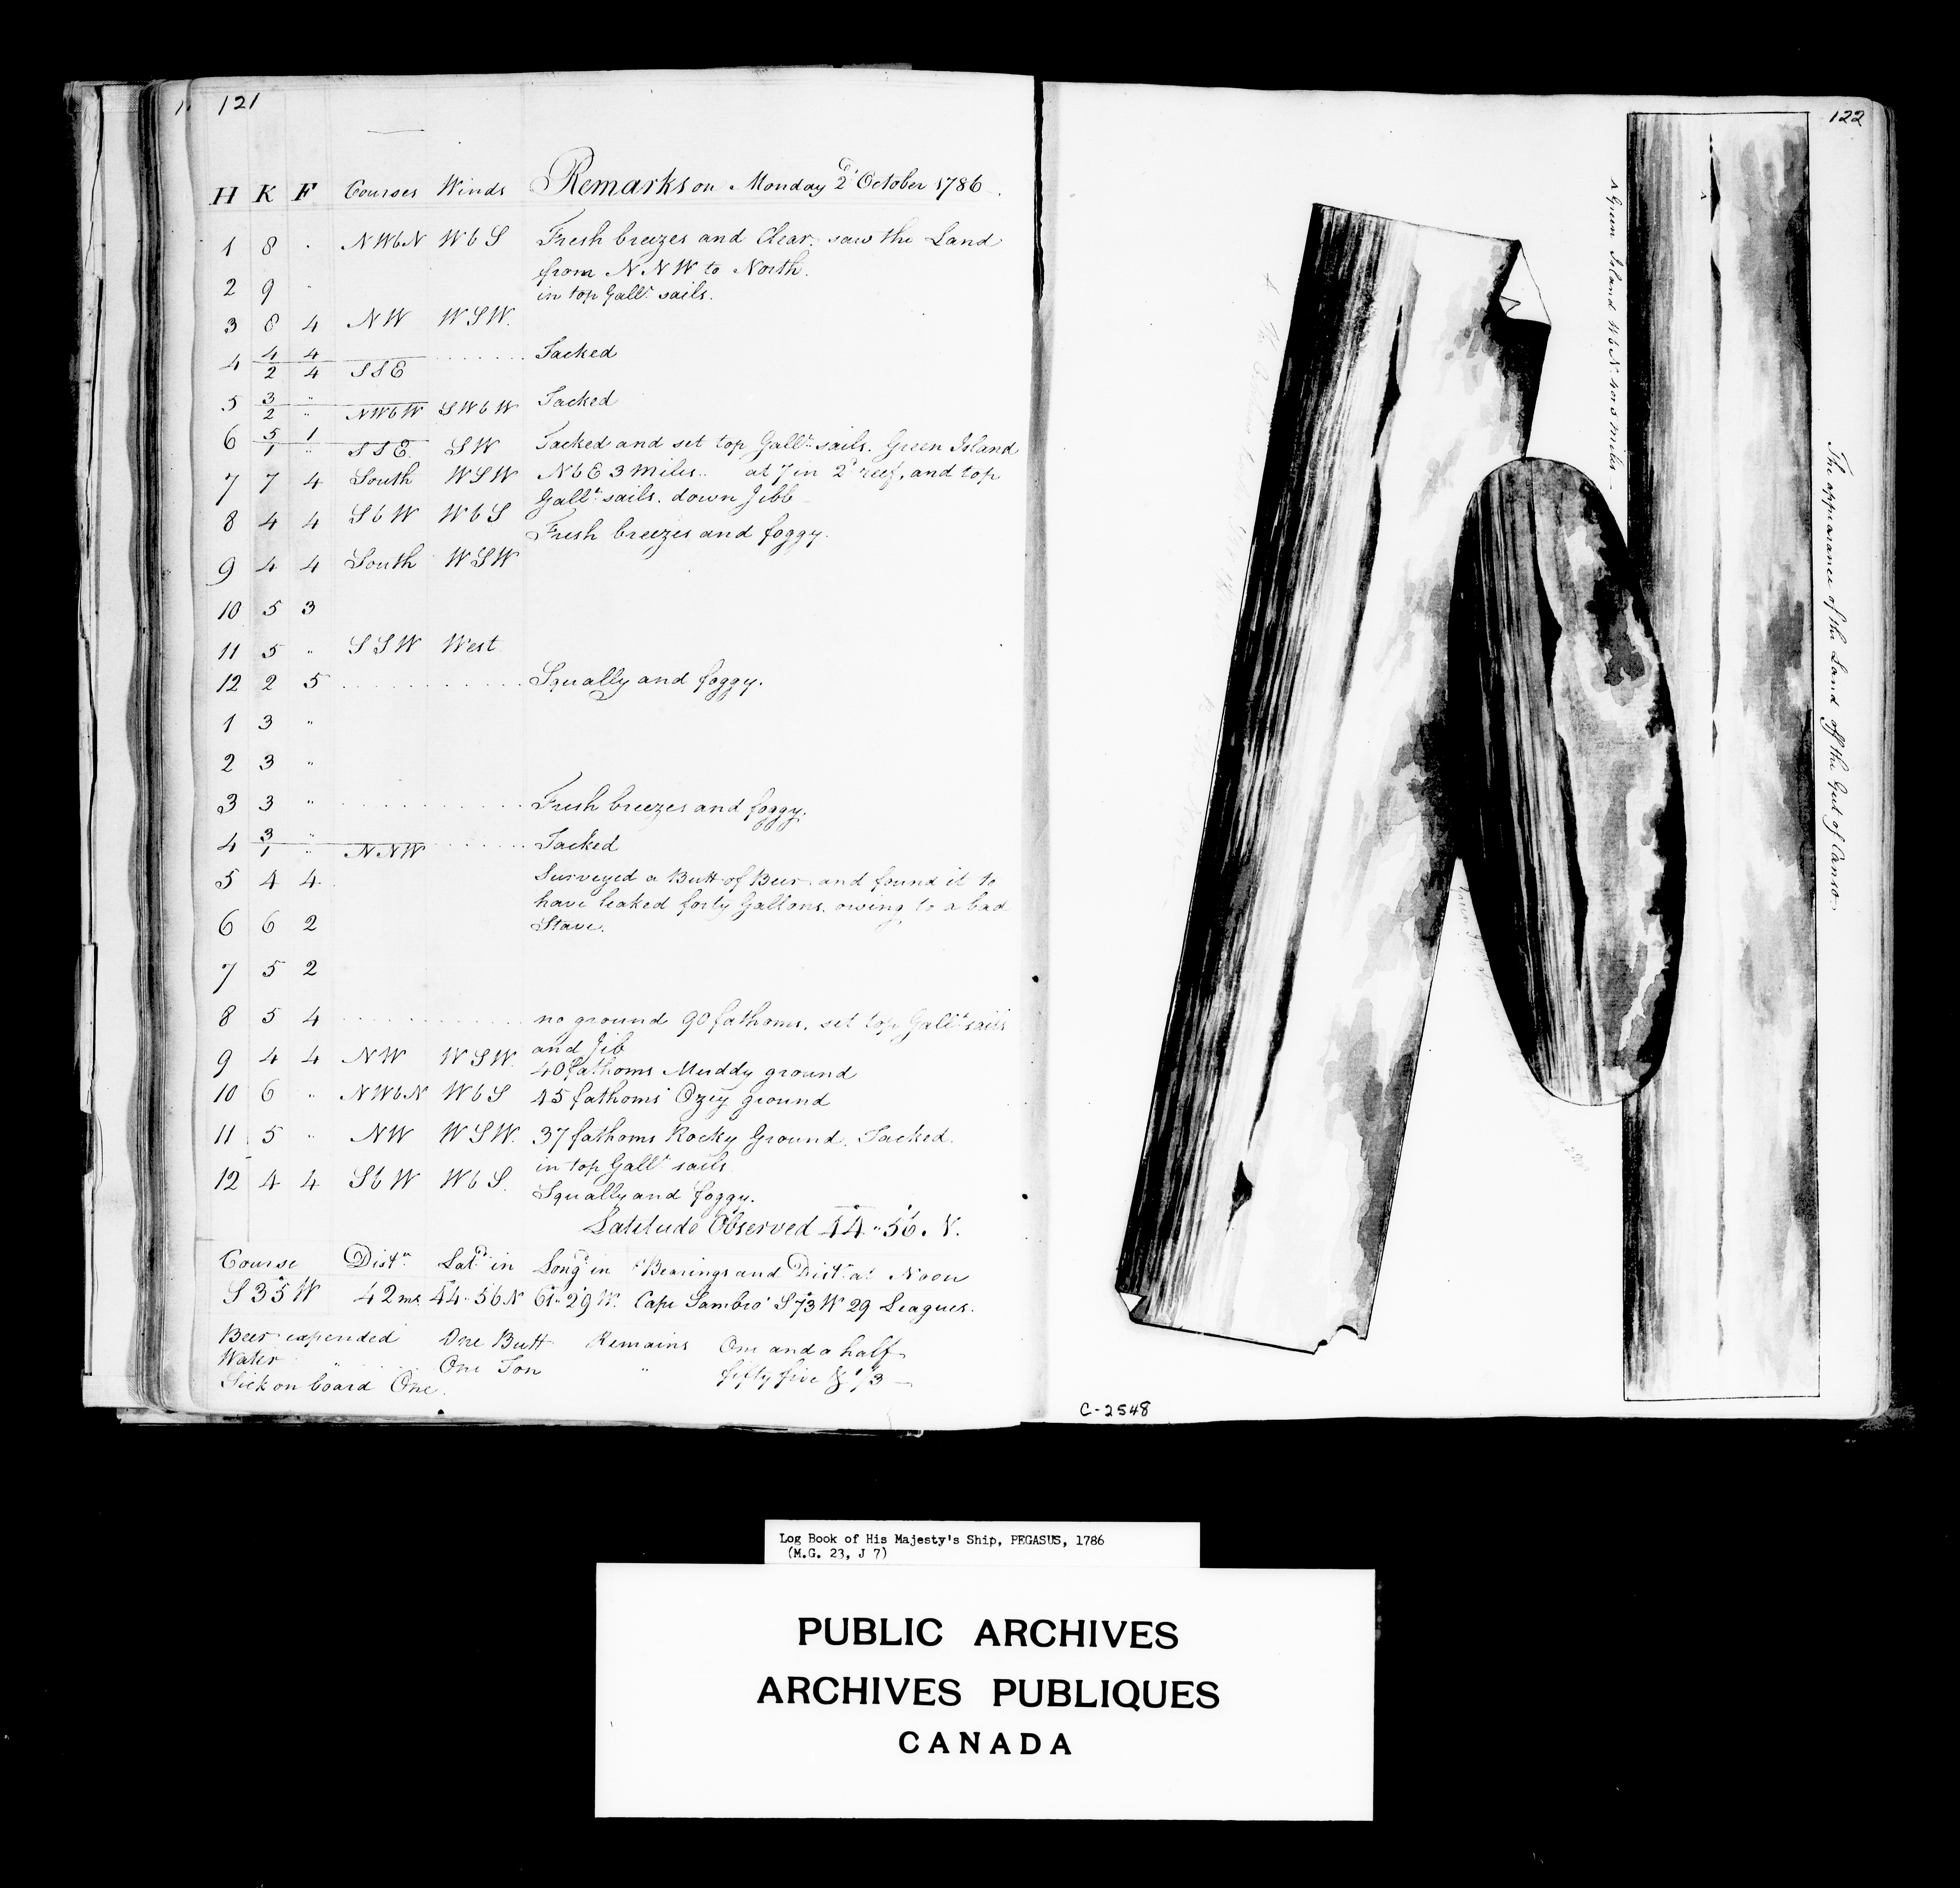 121
H K F Courses Winds Remarks on Monday 2d October 1786.
1 8 " NWbN WbS Fresh breezes and Clear, saw the Land
from NNW to North.
2 9 " in top Gallt sails.
3 8 4 NW WSW.
4 4 4 Tacked
2 4 SSE
5 3 " Tacked
2 " NWbW SWbW
6 5 1 Tacked and set top Gallt sails. Green Island
1 " SSE. SW
7 7 4 South WSW NbE 3 Miles. at 7 in 2d reef, and top
Gallt sails. down Jibb
8 4 4 SbW WbS Fresh breezes and foggy.
9 4 4 South WSW
10 5 3
11 5 " SSW West
12 2 5 Squally and foggy.
1 3 "
2 3 "
3 3 " Fresh breezes and foggy.
4 3 " Tacked
1 " NNW
5 4 4 Surveyed a Butt of Beer and found it to
have leaked forty Gallons, owing to a bad
6 6 2 Stave.
7 5 2
8 5 4 no ground 90 fathoms, set top Gallt sails
and Jib
9 4 4 NW WSW. 40 fathoms Muddy ground
10 6 " NWbN WbS 45 fathoms Ozey ground
11 5 " NW WSW. 37 fathoms Rocky Ground. Tacked.
in top Gallt sails
12 4 4 SbW WbS. Squally and foggy.
Latitude Observed 44°"56' N.
Course Distce Latd in Longd in Bearings and Distce at Noon
S 35° W 42 ms 44°-56'N 61°-29'W. Cape Sambro' S 73° W 29 Leagues.
Beer expended One Butt Remains One and a half
Water " One Ton " fifty five & 1/3
Sick on board One.
122
The appearance of the Land off the Gut of Canso
A Green Island WbN. 4 or 5 Miles
C-2548
Log Book of His Majesty's Ship, PEGASUS, 1786
(M.G. 23, J 7)
PUBLIC ARCHIVES
ARCHIVES PUBLIQUES
CANADA